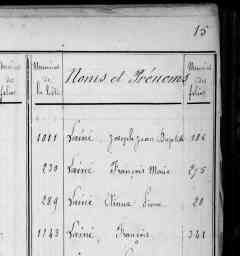 15
Numéros de folios
Numéros de la Liste
Noms et Prénoms
Numéros des folios
1011 Lainé, Joseph Jean Baptiste 186
230 Lainé François Marie 275
289 Lainé Pierre 20
1143 Lainé, François 341